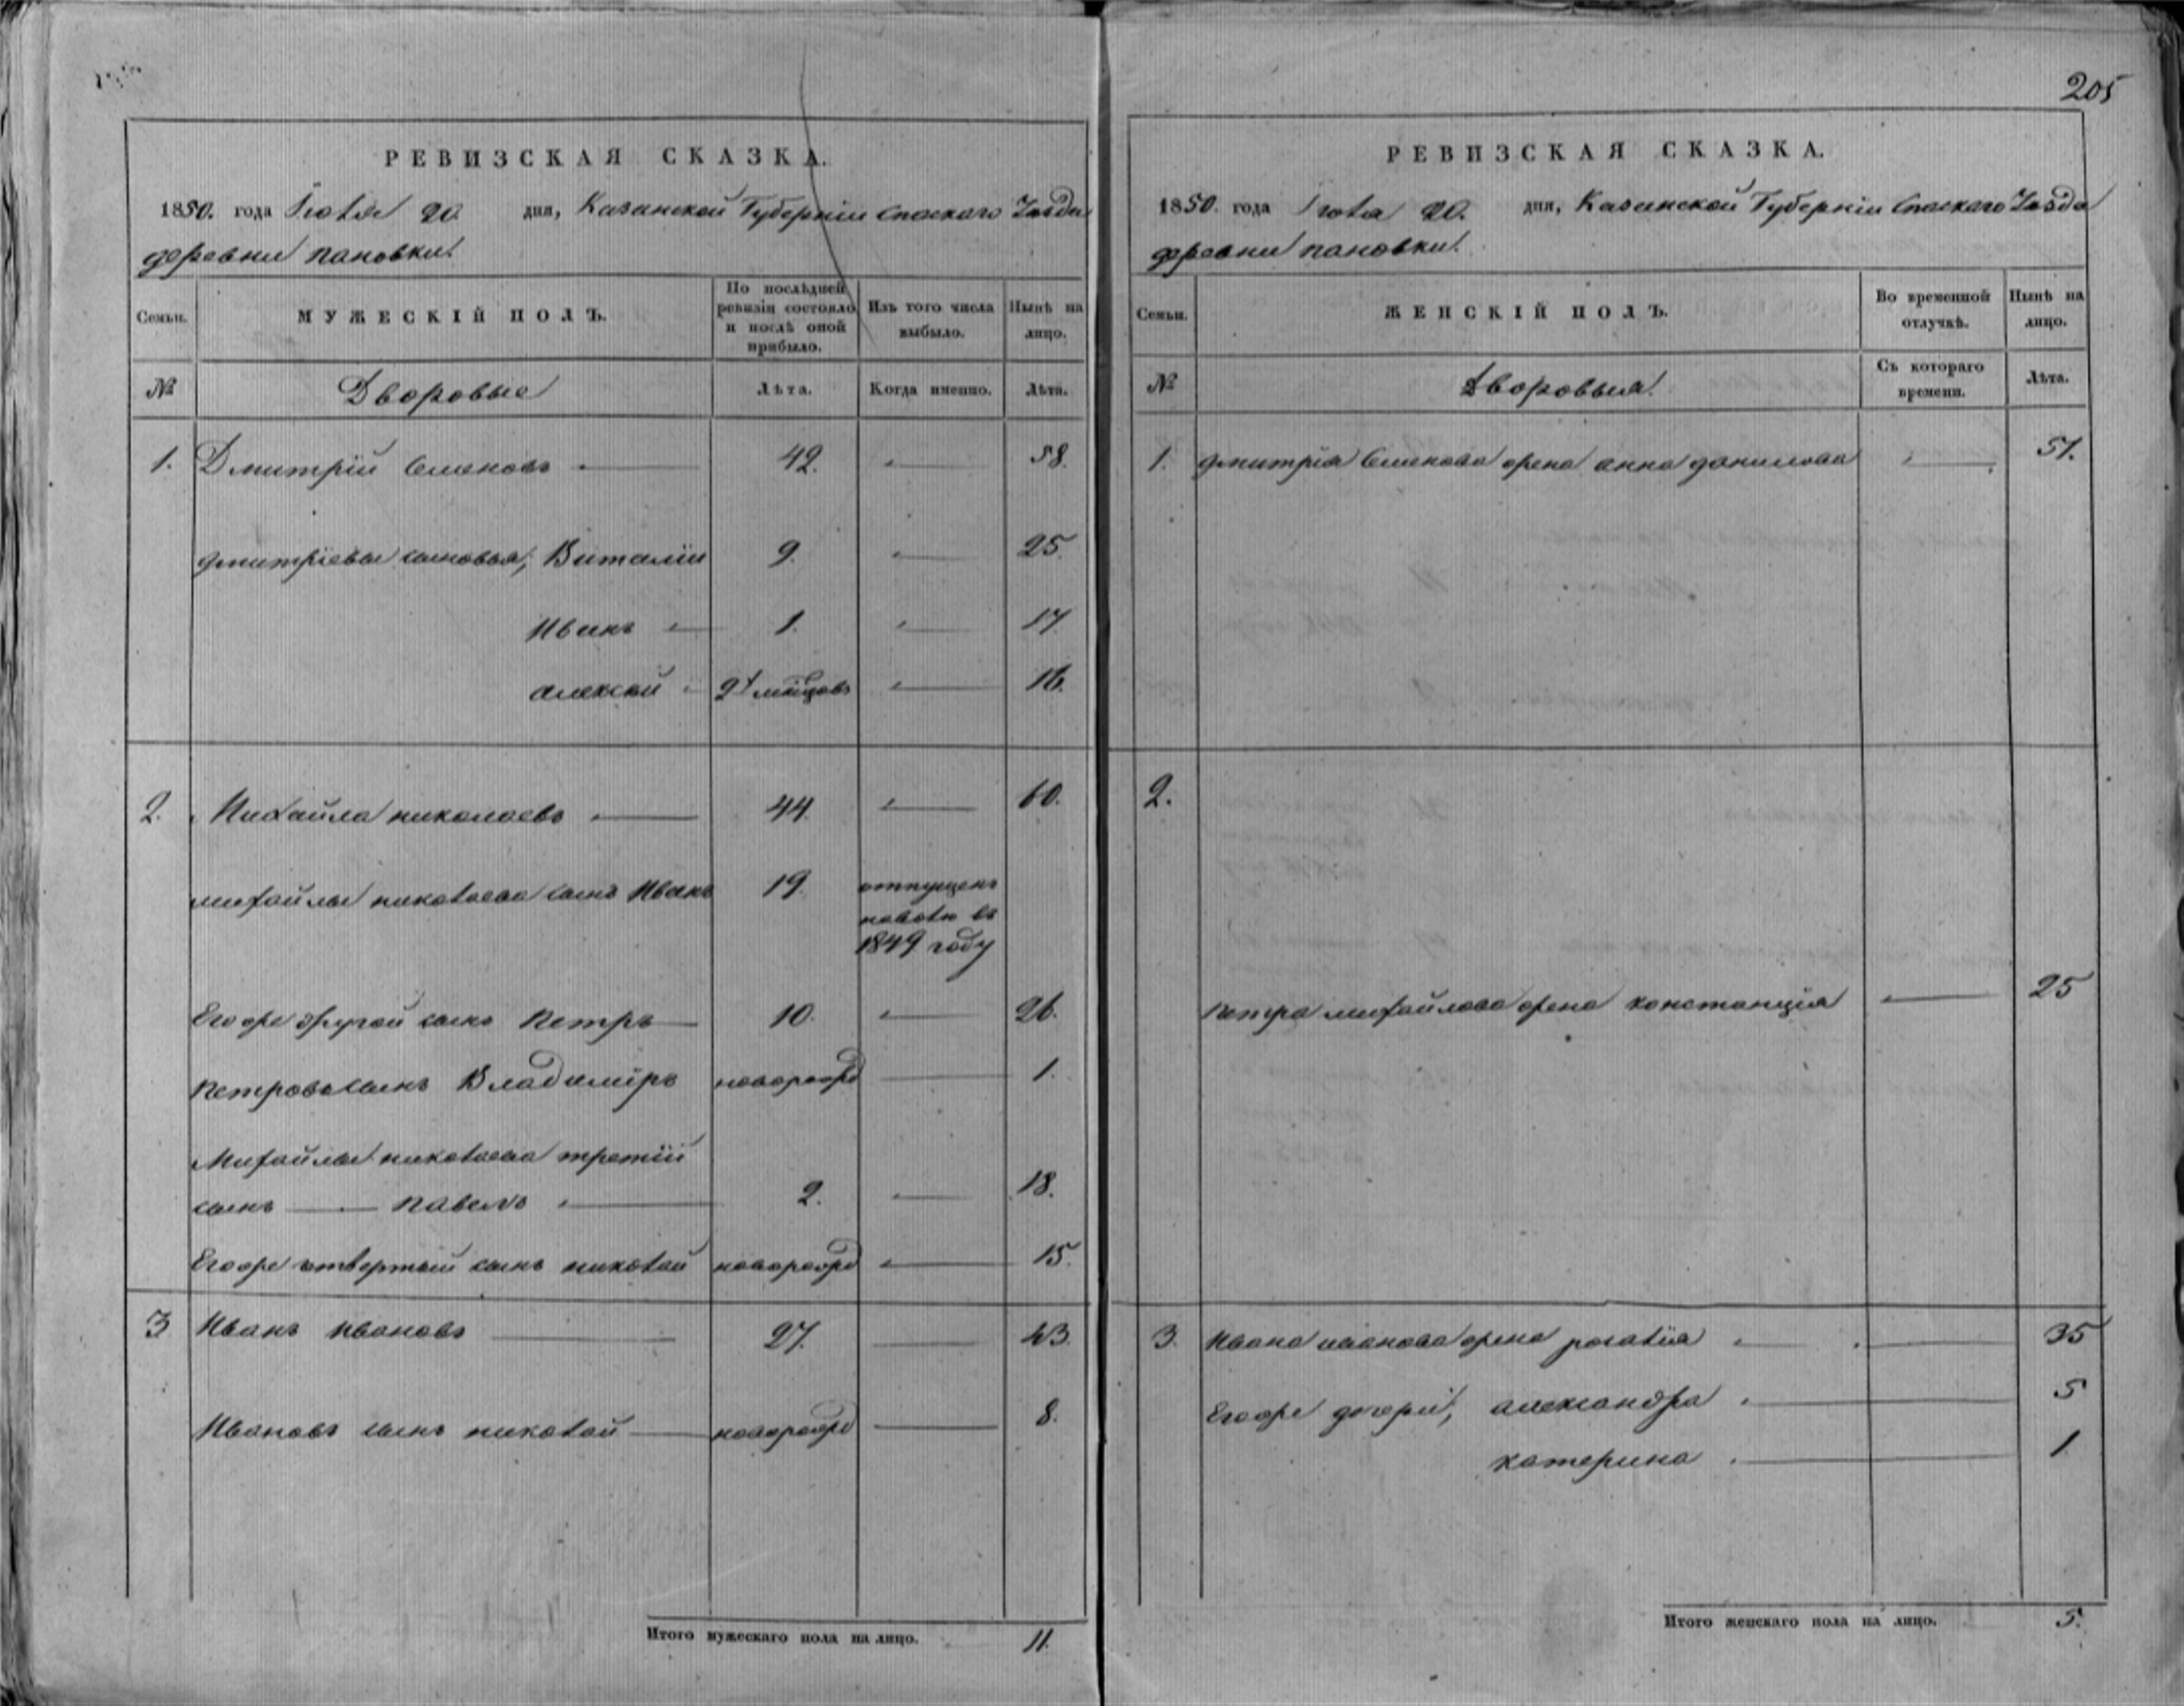 205
РЕВИЗСКАЯ СКАЗКА.
1850. года Іюля 20 дня, Казанской Губерніи Спаскаго Уезда
деревни Пановки.
Семьи. МУЖЕСКІЙ ПОЛЪ. По послѣдней ревизіи состояло и послѣ оной прибыло. Изъ того числа выбыло. Нынѣ на лицо.
№ Дворовые Лѣта. Когда именно. Лѣта.
1. Дмитрій Семеновъ 42. 58.
Дмитріевы сыновья, Виталіи 9. 25.
Иванъ 1. 17.
алексей 9 1/2 мѣцовъ 16.
2. Михайла николаевъ 44. 60.
михайлы николаева сынъ Иванъ 19. отпущенъ
наволю въ
1849 году
Егоже другой сынъ Петръ 10. 26.
Петровъ сынъ Владимїръ новорожд 1.
Михайлы николаева третїй
сынъ Павелъ 2. 18.
Егоже четвертый сынъ николай новорожд 15.
3 Иванъ Ивановъ 27. 43.
Ивановъ сынъ николай новорожд 8.
Итого мужескаго пола на лицо. 11.
РЕВИЗСКАЯ СКАЗКА.
1850. года Іюля 20. дня, Казанской Губерніи Спаскаго Уезда
деревни пановки.
Семьи. ЖЕНСКІЙ ПОЛЪ. Во временной отлучкѣ. Нынѣ на лицо.
№ Дворовыя. Съ котораго времени. Лѣта.
1. Дмитрїя Семенова жена анна данилова 51.
2.
Петра михайлова жена констанцїя 25
3. Ивана иванова жена розалїя 35
Егоже дочери, александра 5
катерина 1
Итого женскаго пола на лицо. 5.